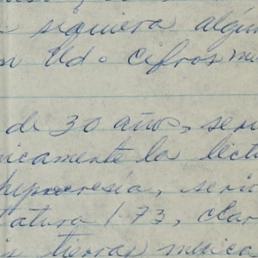 siquiera algún
Ud. cifras
de 30 años, seri
icamente la lect
hipocresía, seri
atura 1.73, clar
tierras mexica